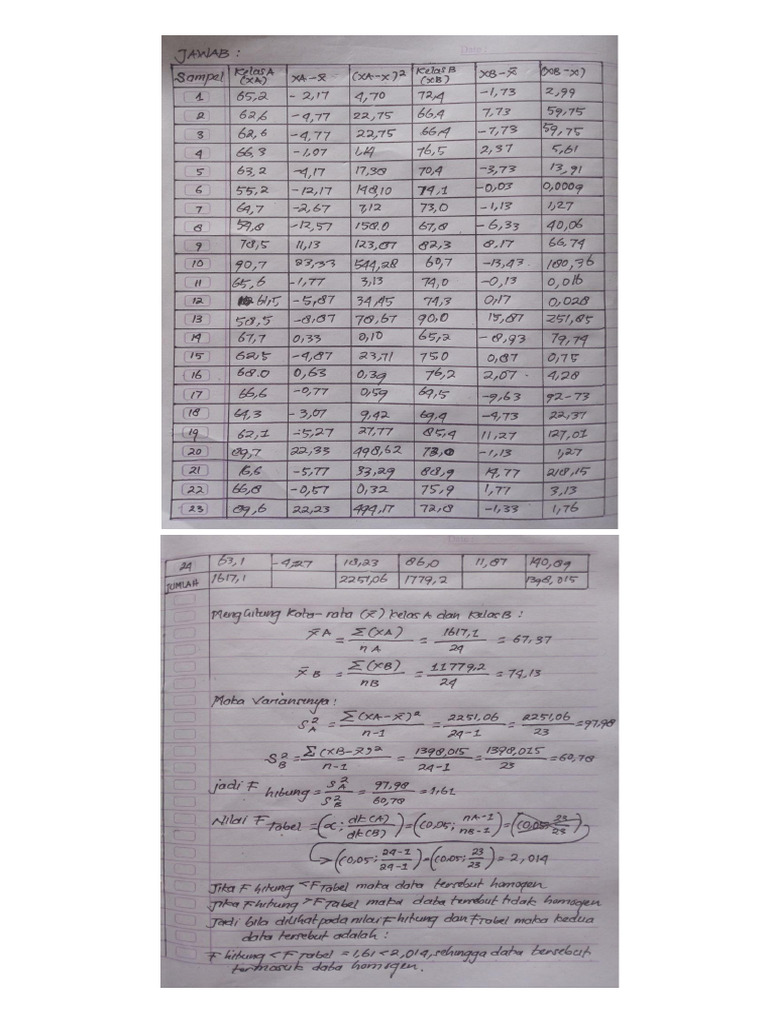 JAWAB :
Sampel Kelas A (XA) XA-x̄ (XA-x)² Kelas B (XB) XB-x̄ (XB-x)
1 65,2 -2,17 4,70 72,4 -1,73 2,99
2 62,6 -4,77 22,75 66,4 7,73 59,75
3 62,6 -4,77 22,75 66,4 -7,73 59,75
4 66,3 -1,07 1,14 76,5 2,37 5,61
5 63,2 -4,17 17,38 70,4 -3,73 13,91
6 55,2 -12,17 148,10 74,1 -0,03 0,0009
7 64,7 -2,67 7,12 73,0 -1,13 1,27
8 59,8 -12,57 158.0 67,8 -6,33 40,06
9 78,5 11,13 123,87 82,3 8,17 66,74
10 90,7 23,33 544,28 60,7 -13,43 180,36
11 65,6 -1,77 3,13 74,0 -0,13 0,016
12 61,5 -5,87 34,45 74,3 0,17 0,028
13 58,5 -8,87 78,67 90,0 15,87 251,85
14 67,7 0,33 0,10 65,2 -8,93 79,74
15 62,5 -4,87 23,71 750 0,87 0,75
16 68.0 0,63 0,39 76,2 2,07 4,28
17 66,6 -0,77 0,59 64,5 -9,63 92-73
18 64,3 -3,07 9,42 69,4 -4,73 22,37
19 62,1 -5,27 27,77 85,4 11,27 127,01
20 89,7 22,33 498,62 73,0 -1,13 1,27
21 -5,77 33,29 88,9 14,77 218,15
22 66,8 -0,57 0,32 75,9 1,77 3,13
23 89,6 22,23 494,17 72,8 -1,33 1,76
24 63,1 -4,27 18,23 86,0 11,87 140,89
JUMLAH 1617,1 2251,06 1779,2 1398,015
Menghitung Rata-rata (x̄) kelas A dan Kelas B :
x̄ A = Σ(XA)/nA = 1617,1/24 = 67,37
x̄ B = Σ(XB)/nB = 11779,2/24 = 74,13
Maka Variansinya :
S²A = Σ(XA-x̄)²/n-1 = 2251,06/24-1 = 2251,06/23 = 97,98
S²B = Σ(XB-x̄)²/n-1 = 1398,015/24-1 = 1398,015/23 = 60,78
jadi F hitung = S²A/S²B = 97,98/60,78 = 1,61
Nilai F Tabel = (α; dk(A)/dk(B)) = (0,05; nA-1/nB-1) = (0,05; 23/23)
(0,05; 24-1/24-1) = (0,05; 23/23) = 2,014
Jika F hitung < F Tabel maka data tersebut homogen
jika F hitung > F Tabel maka data tersebut tidak homogen
Jadi bila dilihat pada nilai F hitung dan F tabel maka kedua
data tersebut adalah :
F hitung < F Tabel = 1,61 < 2,014, sehingga data tersebut
termasuk data homogen.